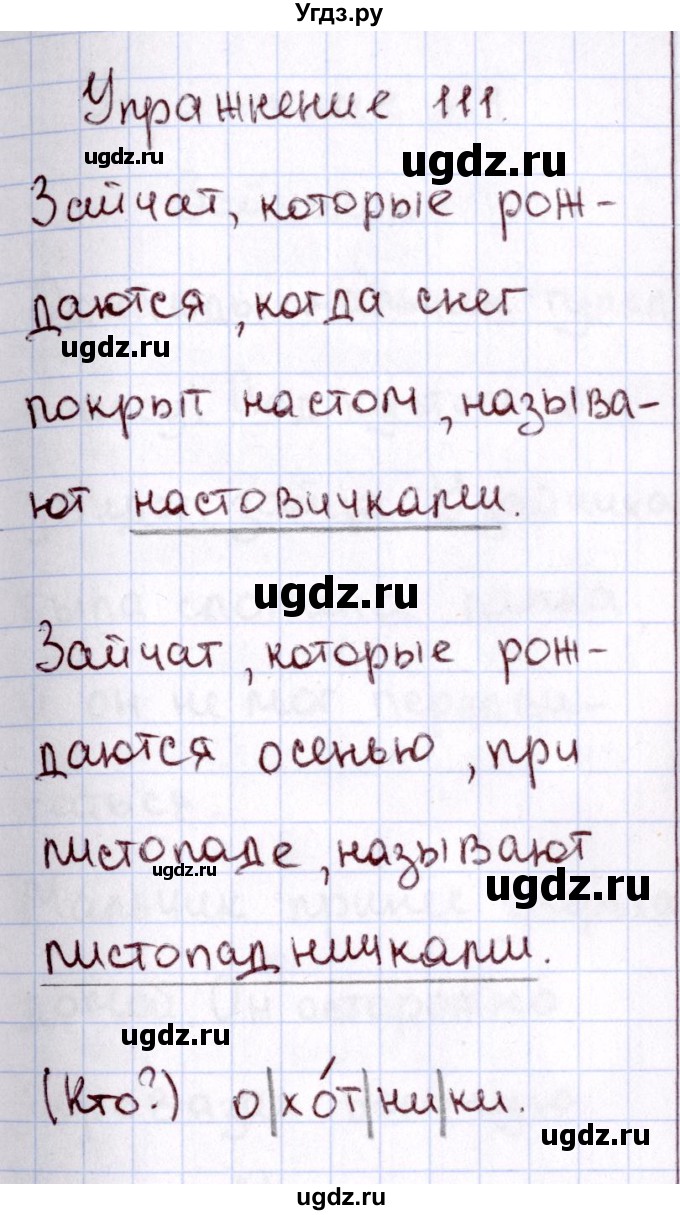 Угдз.ру
Упражнение 111.
ugdz.ru
ugdz.ru
Зайчат, которые рож-
даются, когда снег
ugdz.ru
покрыт настом, называ-
ют настовичками.
ugdz.ru
Зайчат, которые рож-
даются осенью, при
листопаде, называют
ugdz.ru
ugdz.ru
листопадничками.
ugdz.ru
(Кто?) о|хо́т|ни|ки.
ugdz.ru
ugdz.ru